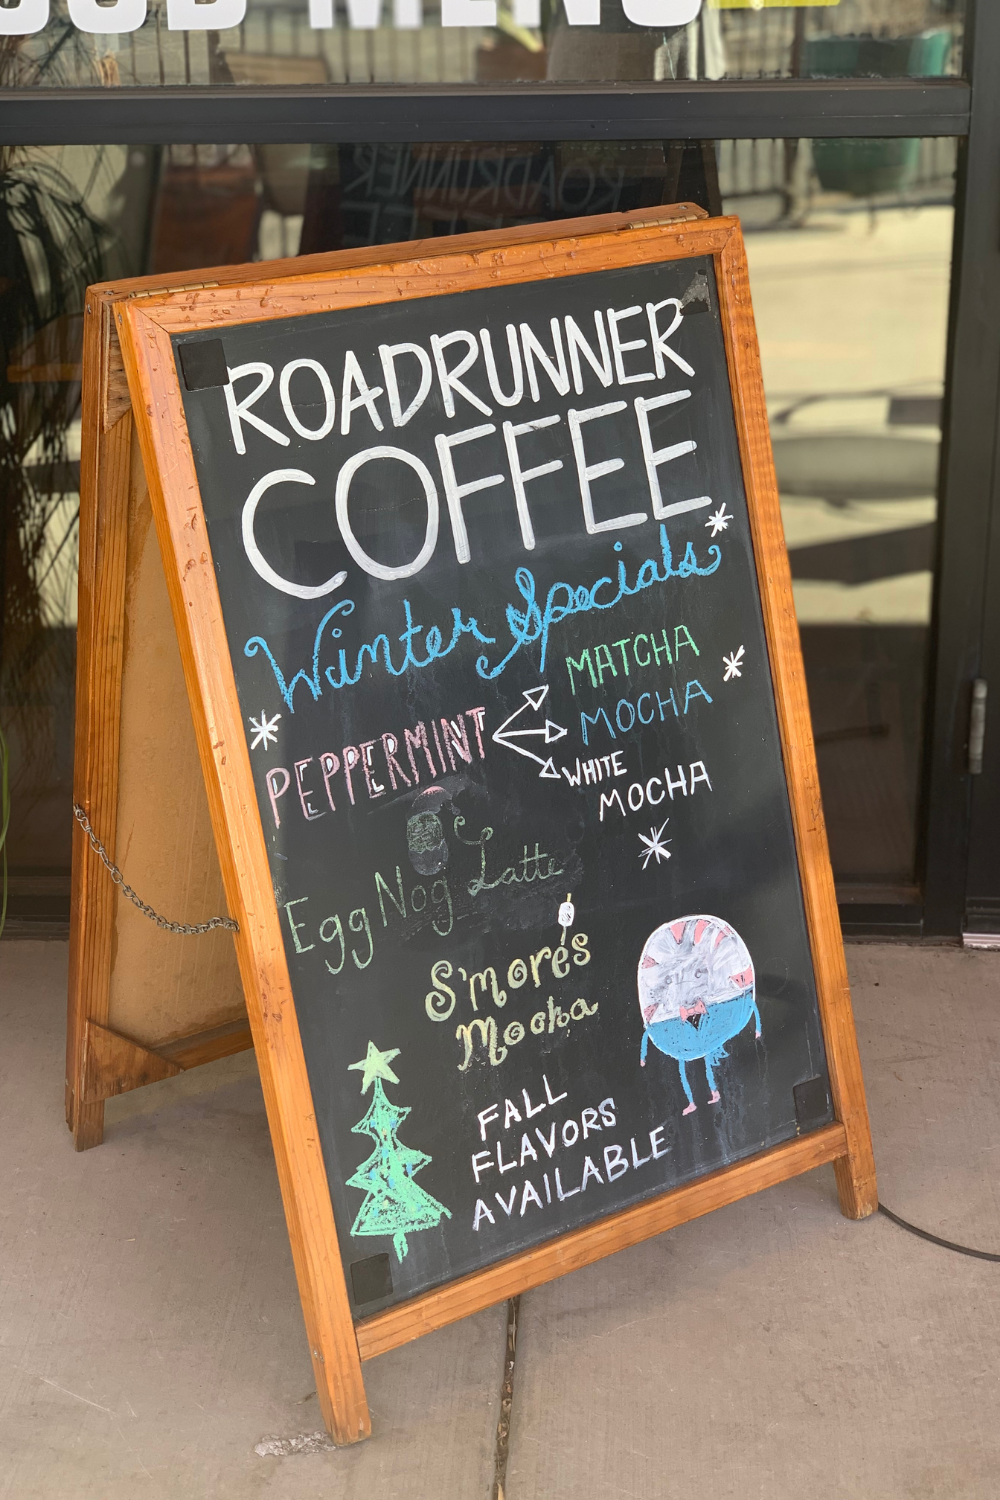 OOD MENU
ROADRUNNER
COFFEE
Winter Specials
PEPPERMINT
MATCHA
MOCHA
WHITE
MOCHA
Egg Nog Latte
S'mores
Mocha
FALL
FLAVORS
AVAILABLE